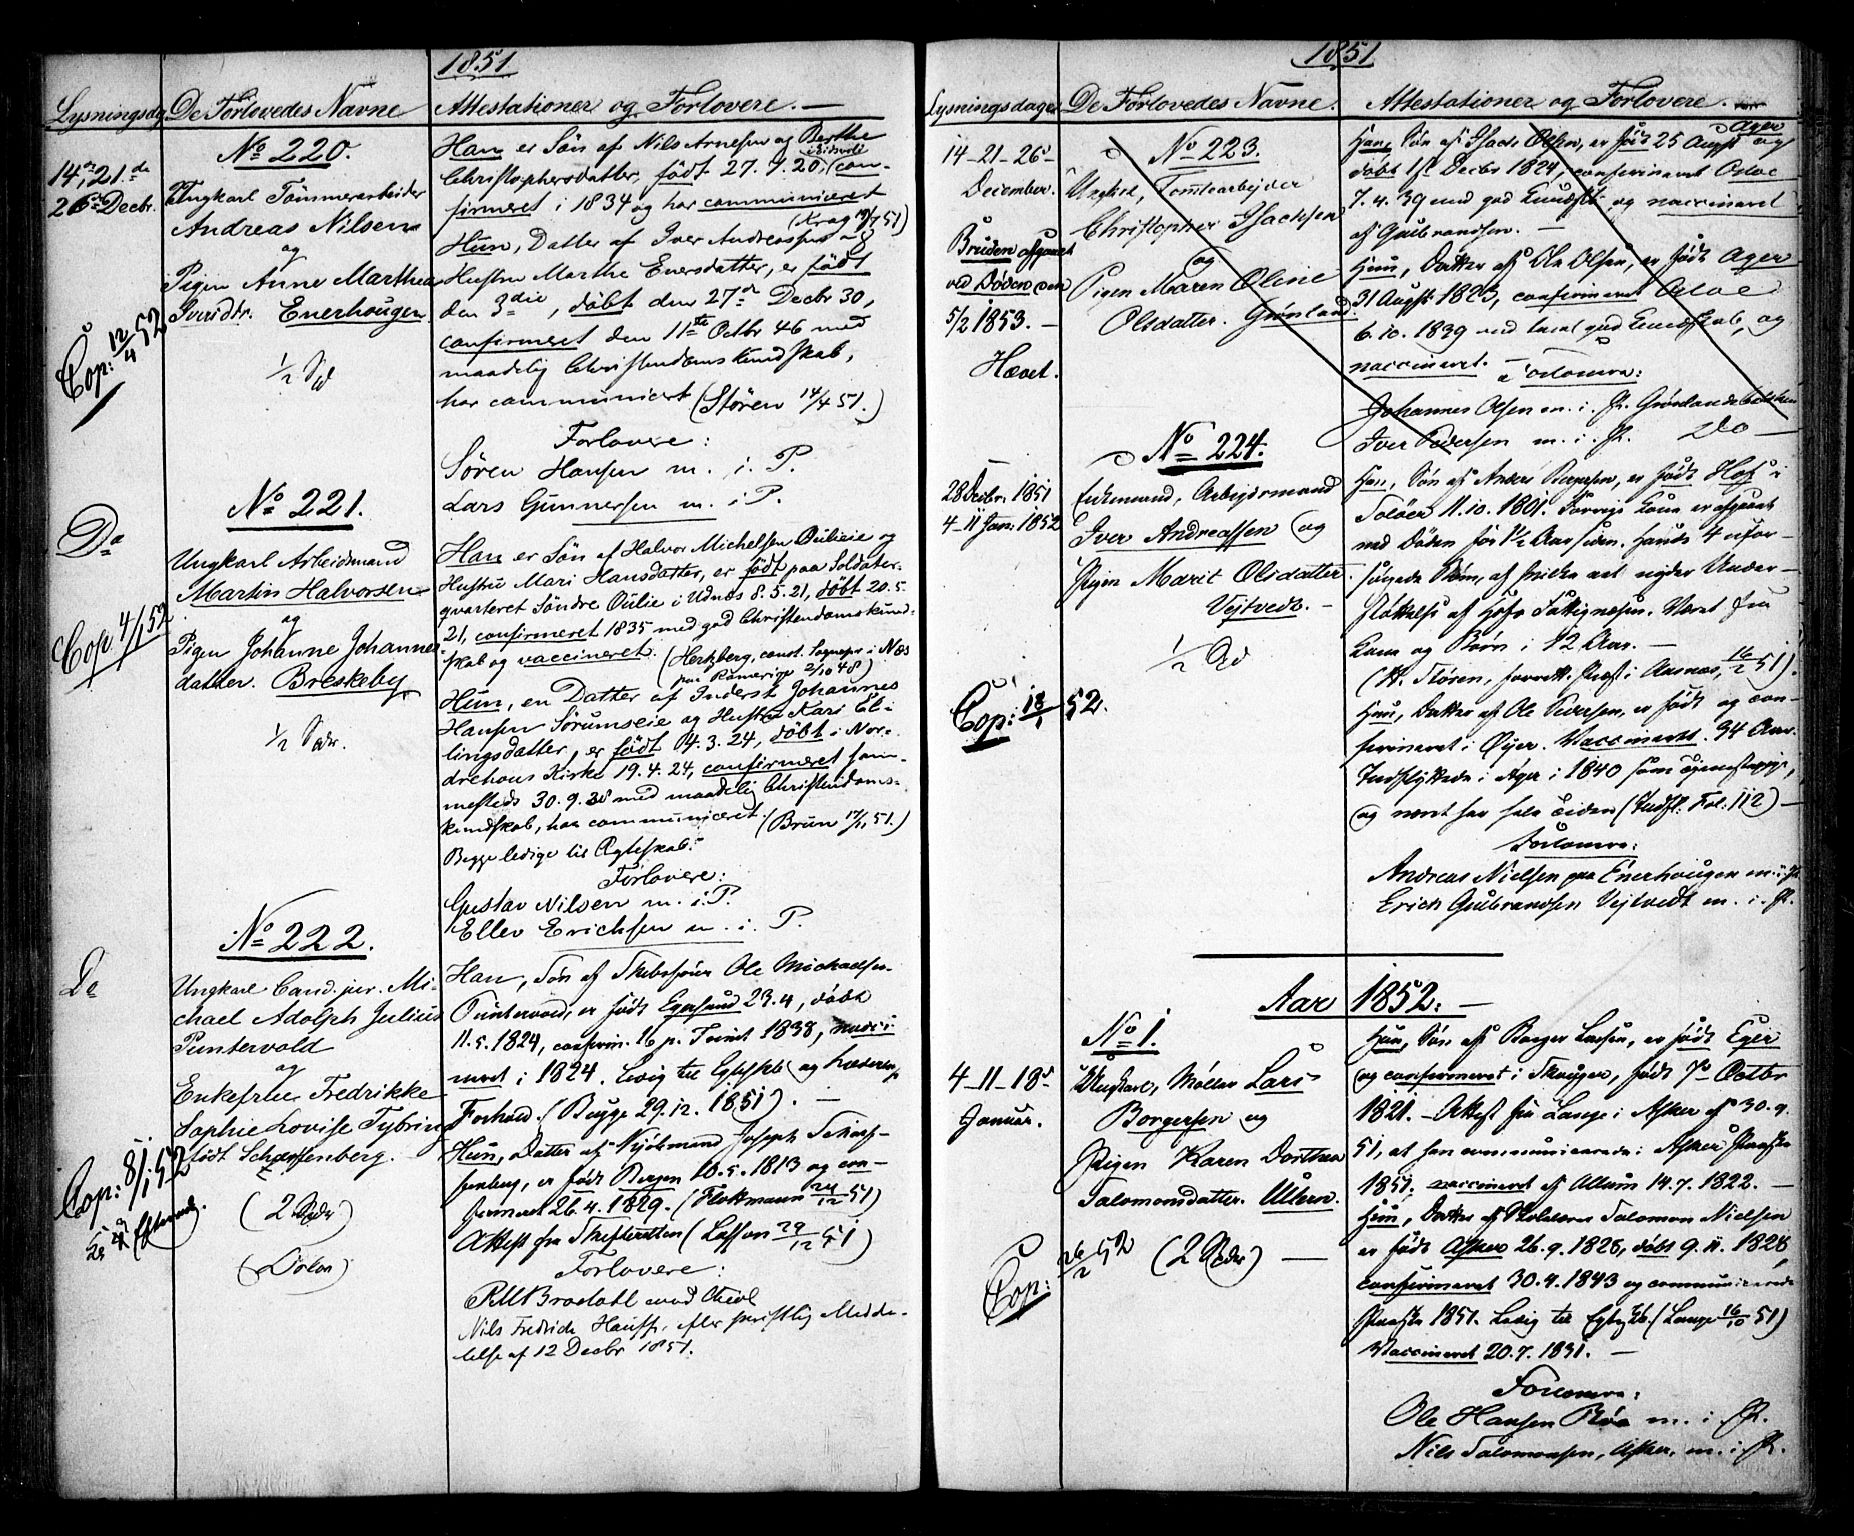 1851
Lysningsdag De Forlovedes Navne Attestationer og Forlovere. —
No 220.
14de, 21de
26de Decbr.
Ungkarl Tømmerarbeider
Andreas Nilsen
og
Pigen Anne Marthea
Iversdtr. Enerhougen.
Cop: 12/4 52
1/2 Spd
Han er Søn af Nils Arnesen og Berthe
Christophersdatter, født 27.7.20, con-
firmeret i 1834 og har communiceret
(Krag 19/7 51)
Hun, Datter af Iver Andreassen og
Hustru Marthe Enersdatter, er født
den 3die, døbt den 27de Decbr 30,
confirmeret den 11te Octbr 46 med
maadelig Christendomskundskab,
har communicert (Stören 14/4 51.)
Forlovere:
Søren Hansen m. i. P.
Lars Gunnersen m. i P.
No 221.
Do
Ungkarl Arbeidsmand
Martin Halvorsen
og
Pigen Johanne Johannes
datter. Breskeby
Cop. 4/1 52
1/2 Spdr.
Han er Søn af Halvor Michelsen Øulieie og
Hustru Mari Hansdatter, er født paa Soldater-
qvarteret Søndre Øulie i Udnæs 8.5.21, døbt 20.5.
21, confirmeret 1835 med god Christendomskund-
skab og vaccineret. (Hertzberg, const. Sognepr. i Næs
paa Romerige 2/10 48)
Hun, en Datter af Inderst Johannes
Hansen Sørumseie og Hustru Kari El-
lingsdatter, er født 14.3.24, døbt i Nor-
drehous Kirke 19.4.24, confirmeret sam-
mesteds 30.9.38 med maadelig Christendoms-
kundskab, har communiceret. (Brun 17/11 51.)
Begge ledige til Ægteskab.
Forlovere:
Gustav Nilsen m. i. P.
Ellev Erichsen m. i. P.
No 222.
Do
Ungkarl Cand. jur. Mi-
chael Adolph Julius
Puntervold
og
Enkefrue Fredrikke
Sophie Lovise Tybring
født Scharffenberg.
Cop: 8/1. 52
Kl 4 Efterm.
(2 Spdr)
Han, Søn af Skibsfører Ole Michaelsen
Puntervold, er født Egersund 23.4, døbt
11.5.1824, confirm. 16 p. Trinit 1838, vacci-
neret i 1824. Ledig til Egteskb og
Forhold. (Bugge 29.12.1851). —
Hun, Datter af Kjøbmand Joseph Scharf-
fenberg, er født Bergen 10.5.1813 og con-
firmeret 26.4.1829. (Flottmann 24/12 51)
Attest fra Skifteretten (Lasson 29/12 51)
Forlovere:
Nils Fredrick Hauff, efter skriftlig Medde-
lelse af 12 Decbr 1851.
1851
Lysningsdage De Forlovedes Navne. Attestationer og Forlovere.
No 223.
14–21–26de
December.
Bruden afgaaet
ved Døden den
5/2 1853. —
Hævet.
Ungkarl, Tomtearbejder
Christopher Isachsen
og
Pigen Maren Oline
Olsdatter. Grønland.
Han, Søn af Isach Olsen, er født 25 August Ager og
døbt 1ste Decbr 1824, confirmeret Osloe
7.4.39 med god Kundsk. og vaccineret
af Gulbrandsen. —
Hun, Datter af Ole Olsen, er født Ager
31 August 1823, confirmeret Osloe
6.10.1839 med meget god Kundskab, og
vaccineret. —
Forlovere:
Johannes Olsen m. i. P. Grønlandsbakken
Iver Pedersen m. i. P. Do —
No 224.
28 Decbr. 1851
4–11 Jan. 1852
Enkemand, Arbejdsmand
Iver Andreassen og
Pigen Marit Olsdatter.
Vejtvedt. —
1/2 Spd
Cop: 18/1 52.
Han, Søn af Anders Iversen, er født Hof i
Soløer 11.10.1801. Forrige Kone er afgaaet
ved Døden for 1 1/2 Aar siden. Hands 4 ufor-
sørgede Børn, af hvilke eet nyder Under-
støttelse af Hofs Fattigvæsen. Været fra
Kone og Børn i 12 Aar. —
(H. Stören, forrett. Præst i Aasnæs, 16/12 51).
Hun, Datter af Ole Pedersen, er født og con-
firmeret i Øyer. Vaccineret. 34 Aar.
Indflyttede i Ager i 1840 som Tjenestepige,
og været her hele Tiden (Indfl. Fol. 112) —
Forlovere:
Andreas Nielsen paa Enerhougen m. i. P.
Erich Gulbrandsen Vejtvedt m. i. P.
Aar 1852. —
No 1.
4–11–18de
Januar.
Ungkarl, Møller Lars
Borgersen og
Pigen Karen Dorthea
Salomonsdatter. Ullern. —
Cop: 26/2 52
(2 Spdr) —
Han, Søn af Borger Larsen, er født Eger
og confirmeret i Skouger, født 7de Octbr
1821. – Attest fra Lange i Asker af 30.9.
51, at han communicerede i Asker Paaske
1851; vaccineret af Allum 14.7.1822. —
Hun, Datter af Salomon Nielsen
er født Asker 26.9.1828, døbt 9.11.1828
confirmeret 30.4.1843 og communicerede
Paaske 1851. Ledig til Egtesk. (Lange 16/10 51)
Vaccineret 20.7.1831. —
Forlovere:
Ole Hansen Røa m. i. P.
Nils Salomonsen, Asker, m. i. P.